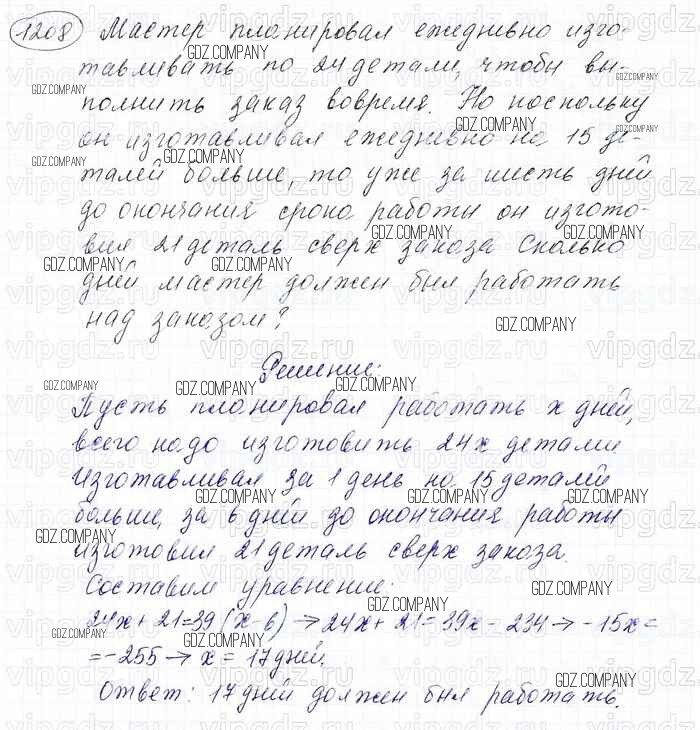 1208 Мастер планировал ежедневно изго-
тавливать по 24 детали, чтобы вы-
полнить заказ вовремя. Но поскольку
он изготавливал ежедневно на 15 де-
талей больше, то уже за шесть дней
до окончания срока работы он изгото-
вил 21 деталь сверх заказа. Сколько
дней мастер должен был работать
над заказом?
Решение:
Пусть планировал работать x дней,
всего надо изготовить 24x детали
Изготавливал за 1 день на 15 деталей
больше, за 6 дней до окончания работы
изготовил 21 деталь сверх заказа.
Составим уравнение:
24x + 21 = 39 (x - 6) → 24x + 21 = 39x - 234 → -15x =
= -255 → x = 17 дней.
Ответ: 17 дней должен был работать.
GDZ.COMPANY
vipgdz.ru